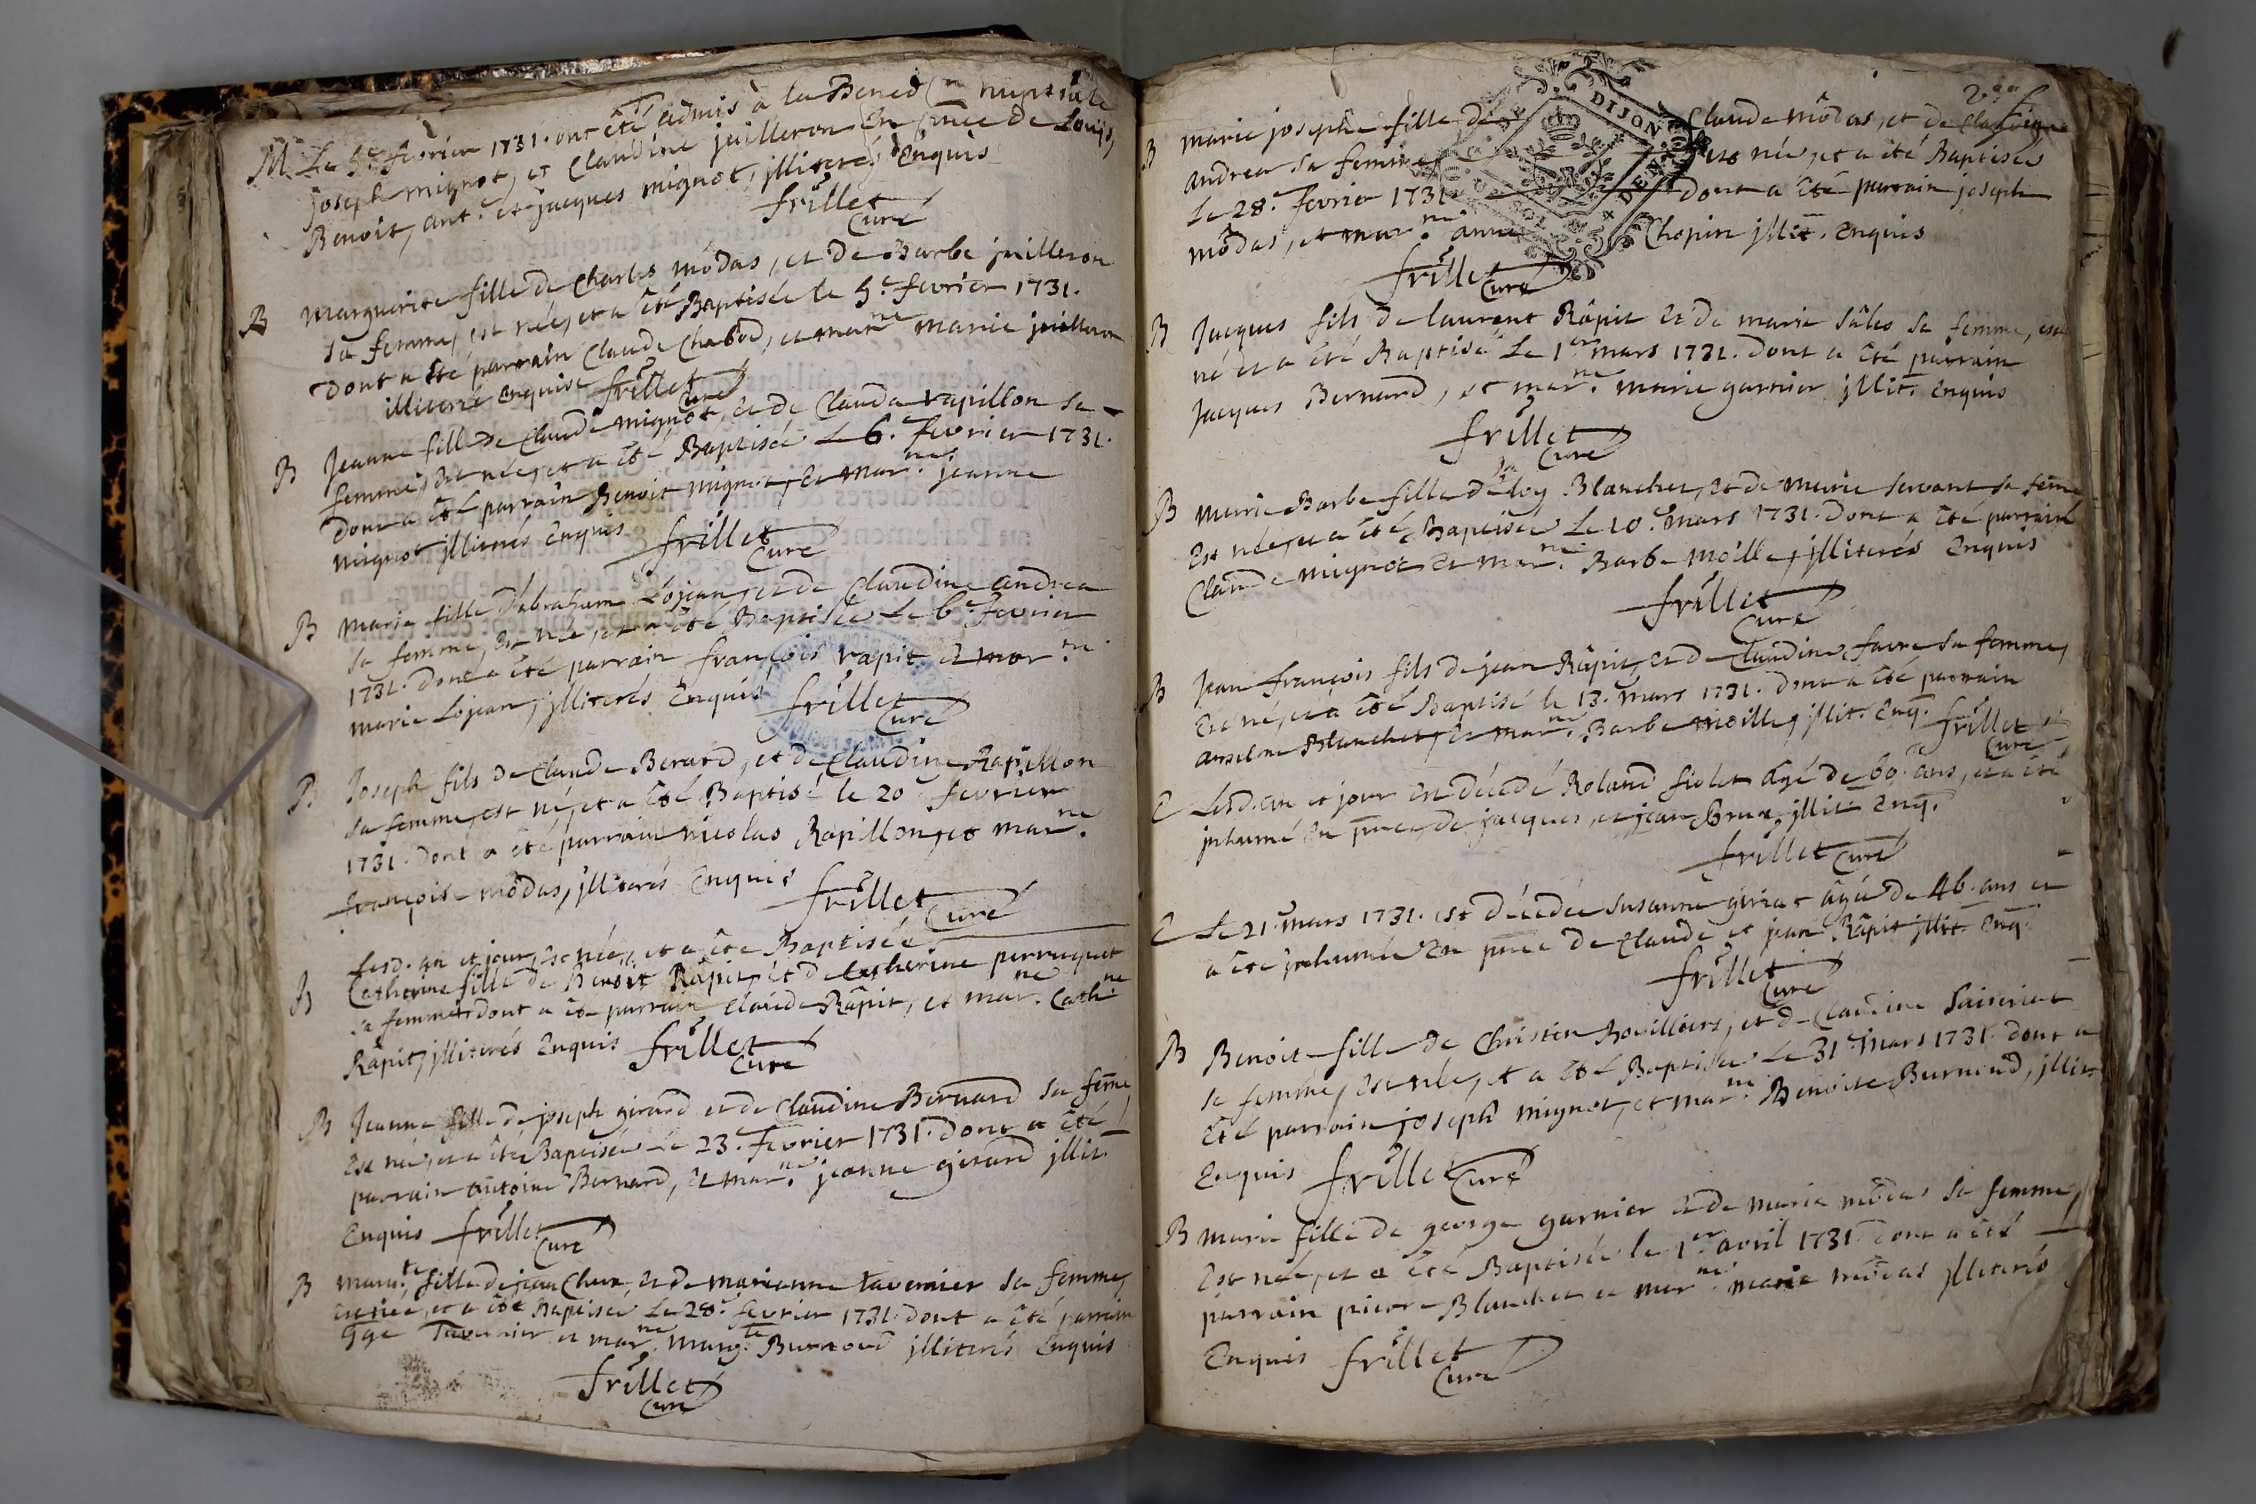 M. Le 5.e fevrier 1731. ont été admis à la Bened.on nuptiale
joseph mignot, et Claudine juilleron En p̄nce de Louis,
Benoit, ant. et jacques mignot, jlliterés Enquis
frillet
Curé
B Marguerite fille de Charles môdas, et de Barbe juilleron
sa femme, est née, et a été Baptisée le 5.e fevrier 1731.
Dont a été parrain Claude Chabod, et mar.ne marie juilleron
illiterés Enquis frillet
Curé
B Jeanne fille de Claude mignot, et de Clauda rapillon sa
femme, est née, et a été Baptisée Le 6.e fevrier 1731.
dont a été parrain Benoit mignot, Et mar.ne jeanne
mignot jlliterés Enquis frillet
Curé
B Marie fille d'abraham Lôjean, et de Claudine andrea
sa femme, Est née, et a été Baptisée Le 6.e fevrier
1731. dont a été parrain françois rapit Et mar.ne
marie Lojean, jlliterés Enquis frillet
Curé
B Joseph fils de Claude Berard, et de Claudine Rapillon
sa femme, est né, et a été Baptisé le 20.e fevrier
1731. Dont a été parrain nicolas Rapillon, et mar.ne
françoise môdas, jlliterés Enquis
frillet
Curé
B Lesd. an et jour, Est née, et a été Baptisée
Catherine fille de Benoit Râpit, Et de Catherine perruquet
sa femme, dont a été parrain Claude Râpit, et mar.ne Cath.ne
Râpit, jlliterés Enquis frillet
Curé
B Jeanne fille de joseph girard et de Claudine Bernard sa fem̄e,
Est née, et a été Baptisée Le 23.e fevrier 1731. Dont a été
parrain antoine Bernard, Et mar.ne jeanne girard jllit.
Enquis frillet
Curé
B Marg.te fille de jean Cheva, Et de marianne tavernier sa femme,
Est née, et a été Baptisée Le 28.e fevrier 1731. Dont a été parrain
gge Tavernier et mar.ne Marg.te Burnoud jlliterés Enquis
frillet
Curé
B Marie josephe fille de Claude môdas, et de
andrea sa femme, Est née, et a été Baptisée
DIJON
Le 28.e fevrier 1731. Dont a été parrain joseph
môdas, et mar.ne anne Chopin jllit. Enquis
frillet
Curé
B Jacques fils de laurent Râpit Et de marie sâles sa femme, est
né et a été Baptisé Le 1.er mars 1731. Dont a été parrain
jacques Bernard, et mar.ne marie garnier jllit. Enquis
frillet
Curé
B Marie Barbe fille d'eloy Blanchet, et de marie servant sa fem̄e
Est née, et a été Baptisée Le 10.e mars 1731. Dont a été parrain
Claude mignot Et mar.ne Barbe moille, jlliterés Enquis
frillet
Curé
B Jean françois fils de jean Râpit, et de Claudine favre sa femme,
Est né, et a été Baptisé le 13.e mars 1731. Dont a été parrain
anselme Blanchet, Et mar.ne Barbe moille, jllit. Enq. frillet
Curé
E Lesd. an et jour Est décedé Roland fiolet âgé de 60. ans, et a été
jnhumé En p̄nce de jacques, et jean Brun, jllit. Enq.
frillet Curé
E Le 21.e mars 1731. est décedée Susanne giriat âgée de 46. ans et
a été jnhumée En p̄nce de Claude et jean Râpit jllit. Enq.
frillet
Curé
B Benoite fille de Christin Bovilliers, et de Claudine saiseriat
sa femme, Est née, et a été Baptisée Le 31.e mars 1731. dont a
été parrain joseph mignot, et mar.ne Benoite Burnoud, jllit.
Enquis frillet Curé
B Marie fille de george garnier Et de marie môdas sa femme,
Est née, et a été Baptisée le 1.er avril 1731. dont a été
parrain pierre Blanchet et mar.ne marie môdas jlliterés
Enquis frillet
Curé